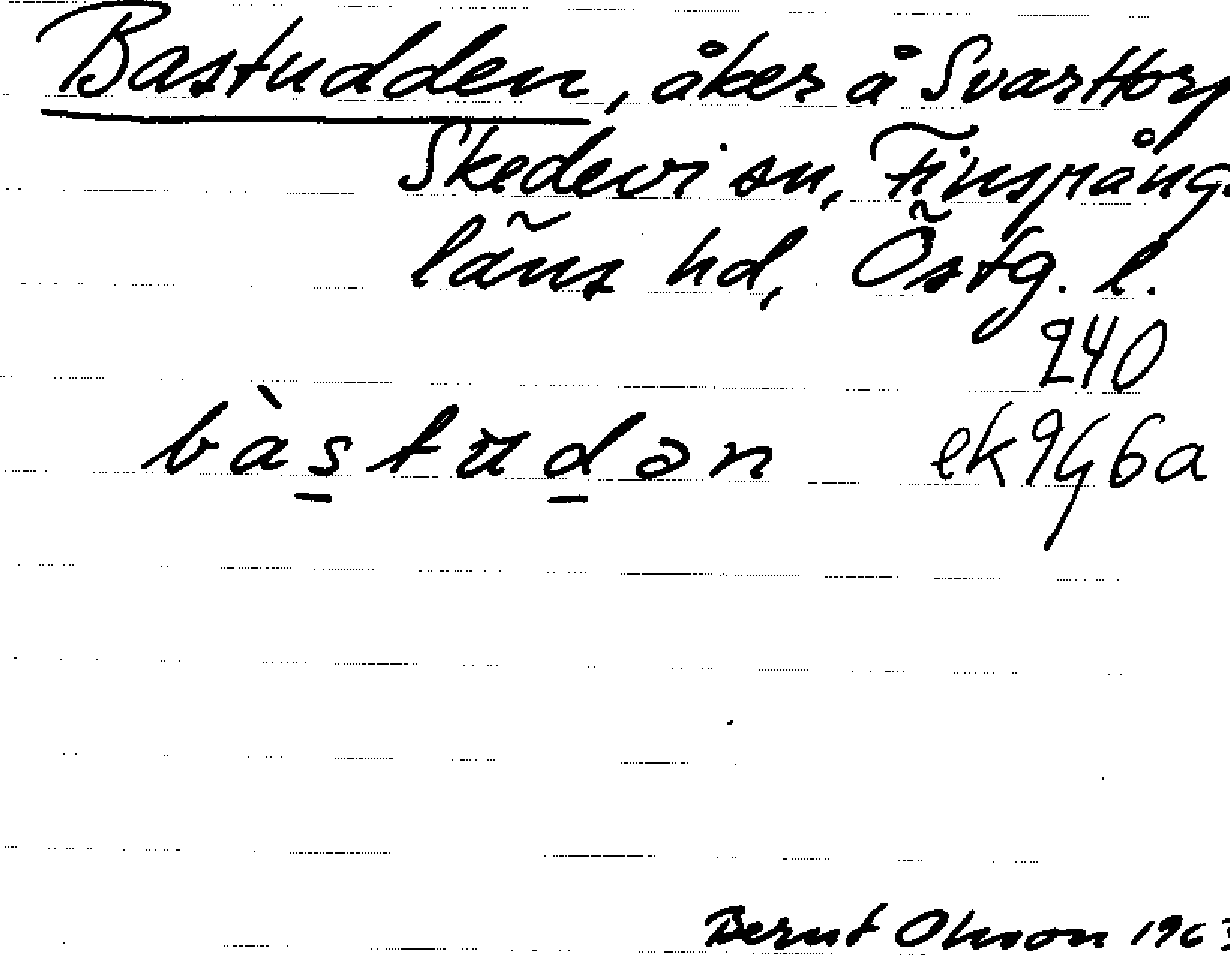 Bastudden, åker å Svarttorp
Skedevi sn, Finspånga
läns hd, Östg. l.
240
bàstudən ek 9G6a
Bernt Olsson 1963